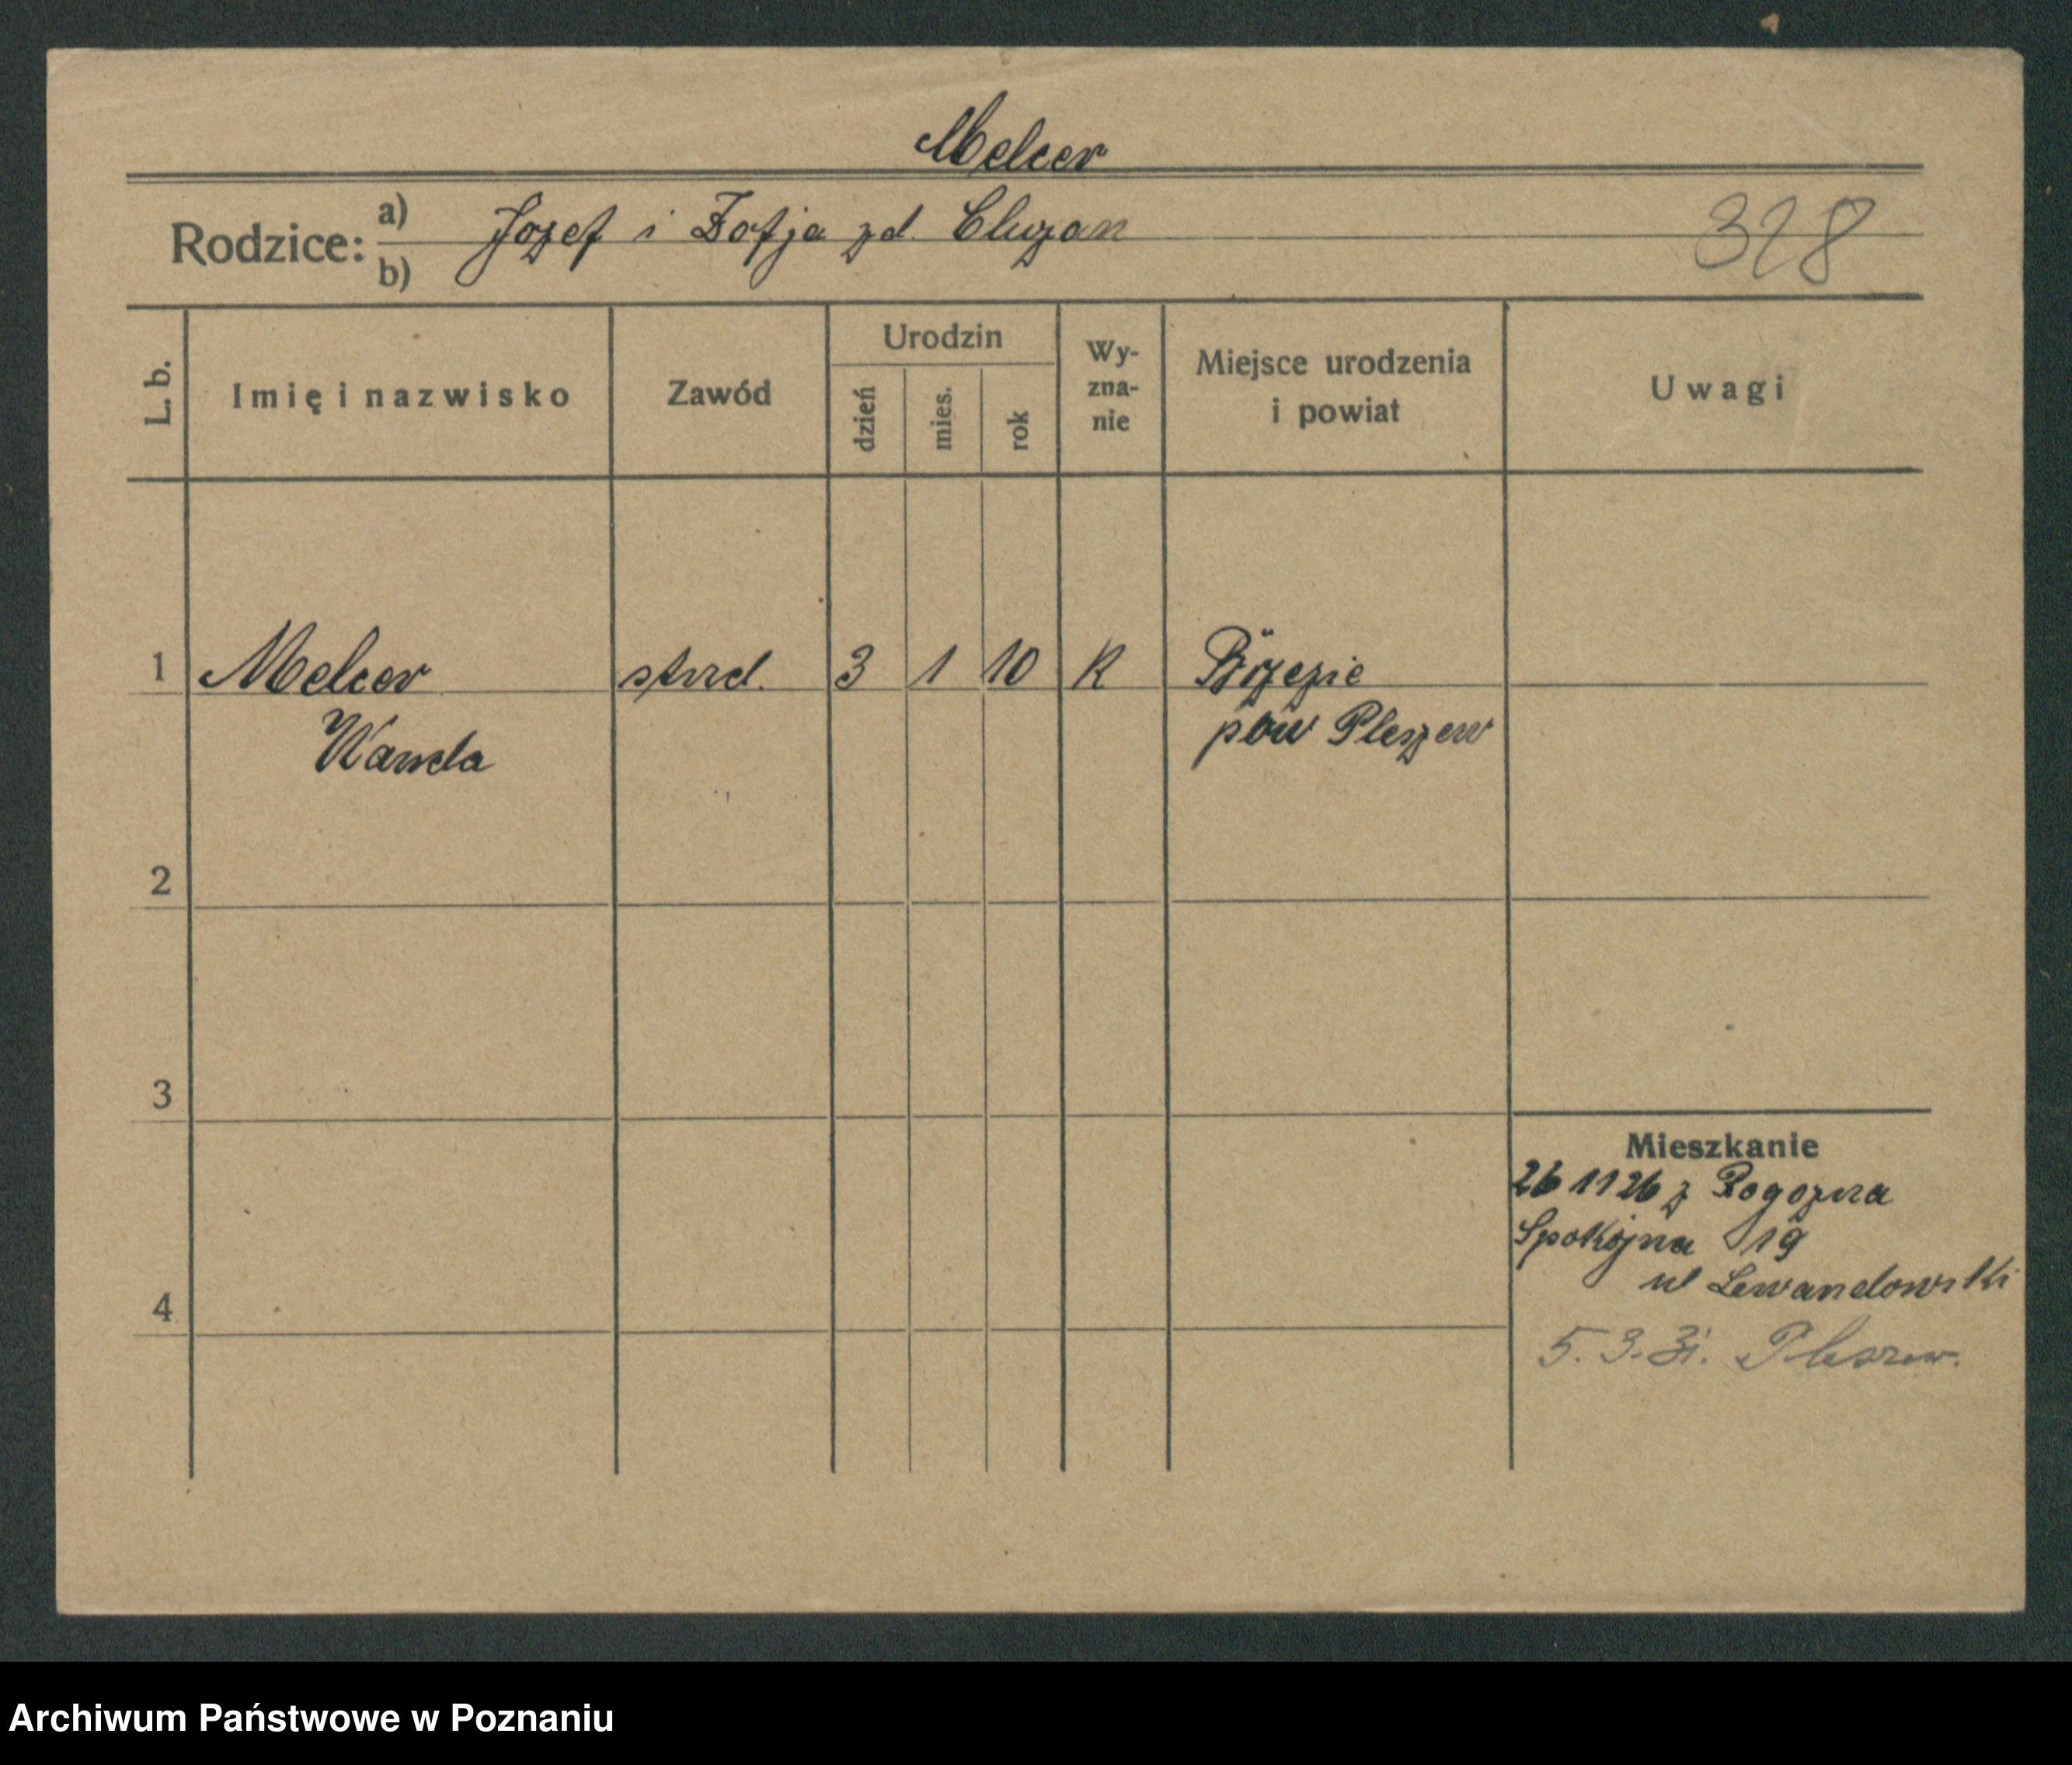 Melcer
Rodzice: a) Jozef i Zofja zd. Cluzan
b)
328
L. b. Imię i nazwisko Zawód Urodzin dzień mies. rok Wy-zna-nie Miejsce urodzenia i powiat Uwagi
1 Melcer 3 1 10 K Brzezie
Wanda pow Pleszew
2
3
Mieszkanie
26 11 26 z Rogozna
Spokojna 19
Lewandowski
4
5. 3. 31. Pleszew.
Archiwum Państwowe w Poznaniu